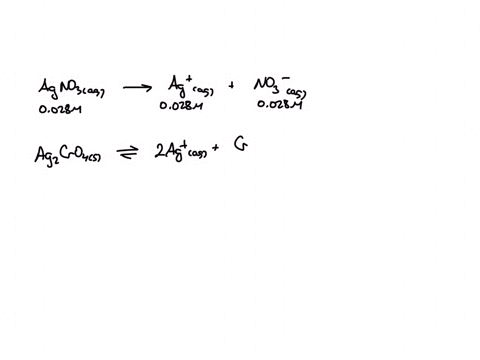 AgNO₃(aq) → Ag⁺(aq) + NO₃⁻(aq)
0.028M 0.028M 0.028M
Ag₂CrO₄(s) ⇌ 2Ag⁺(aq) + Cr